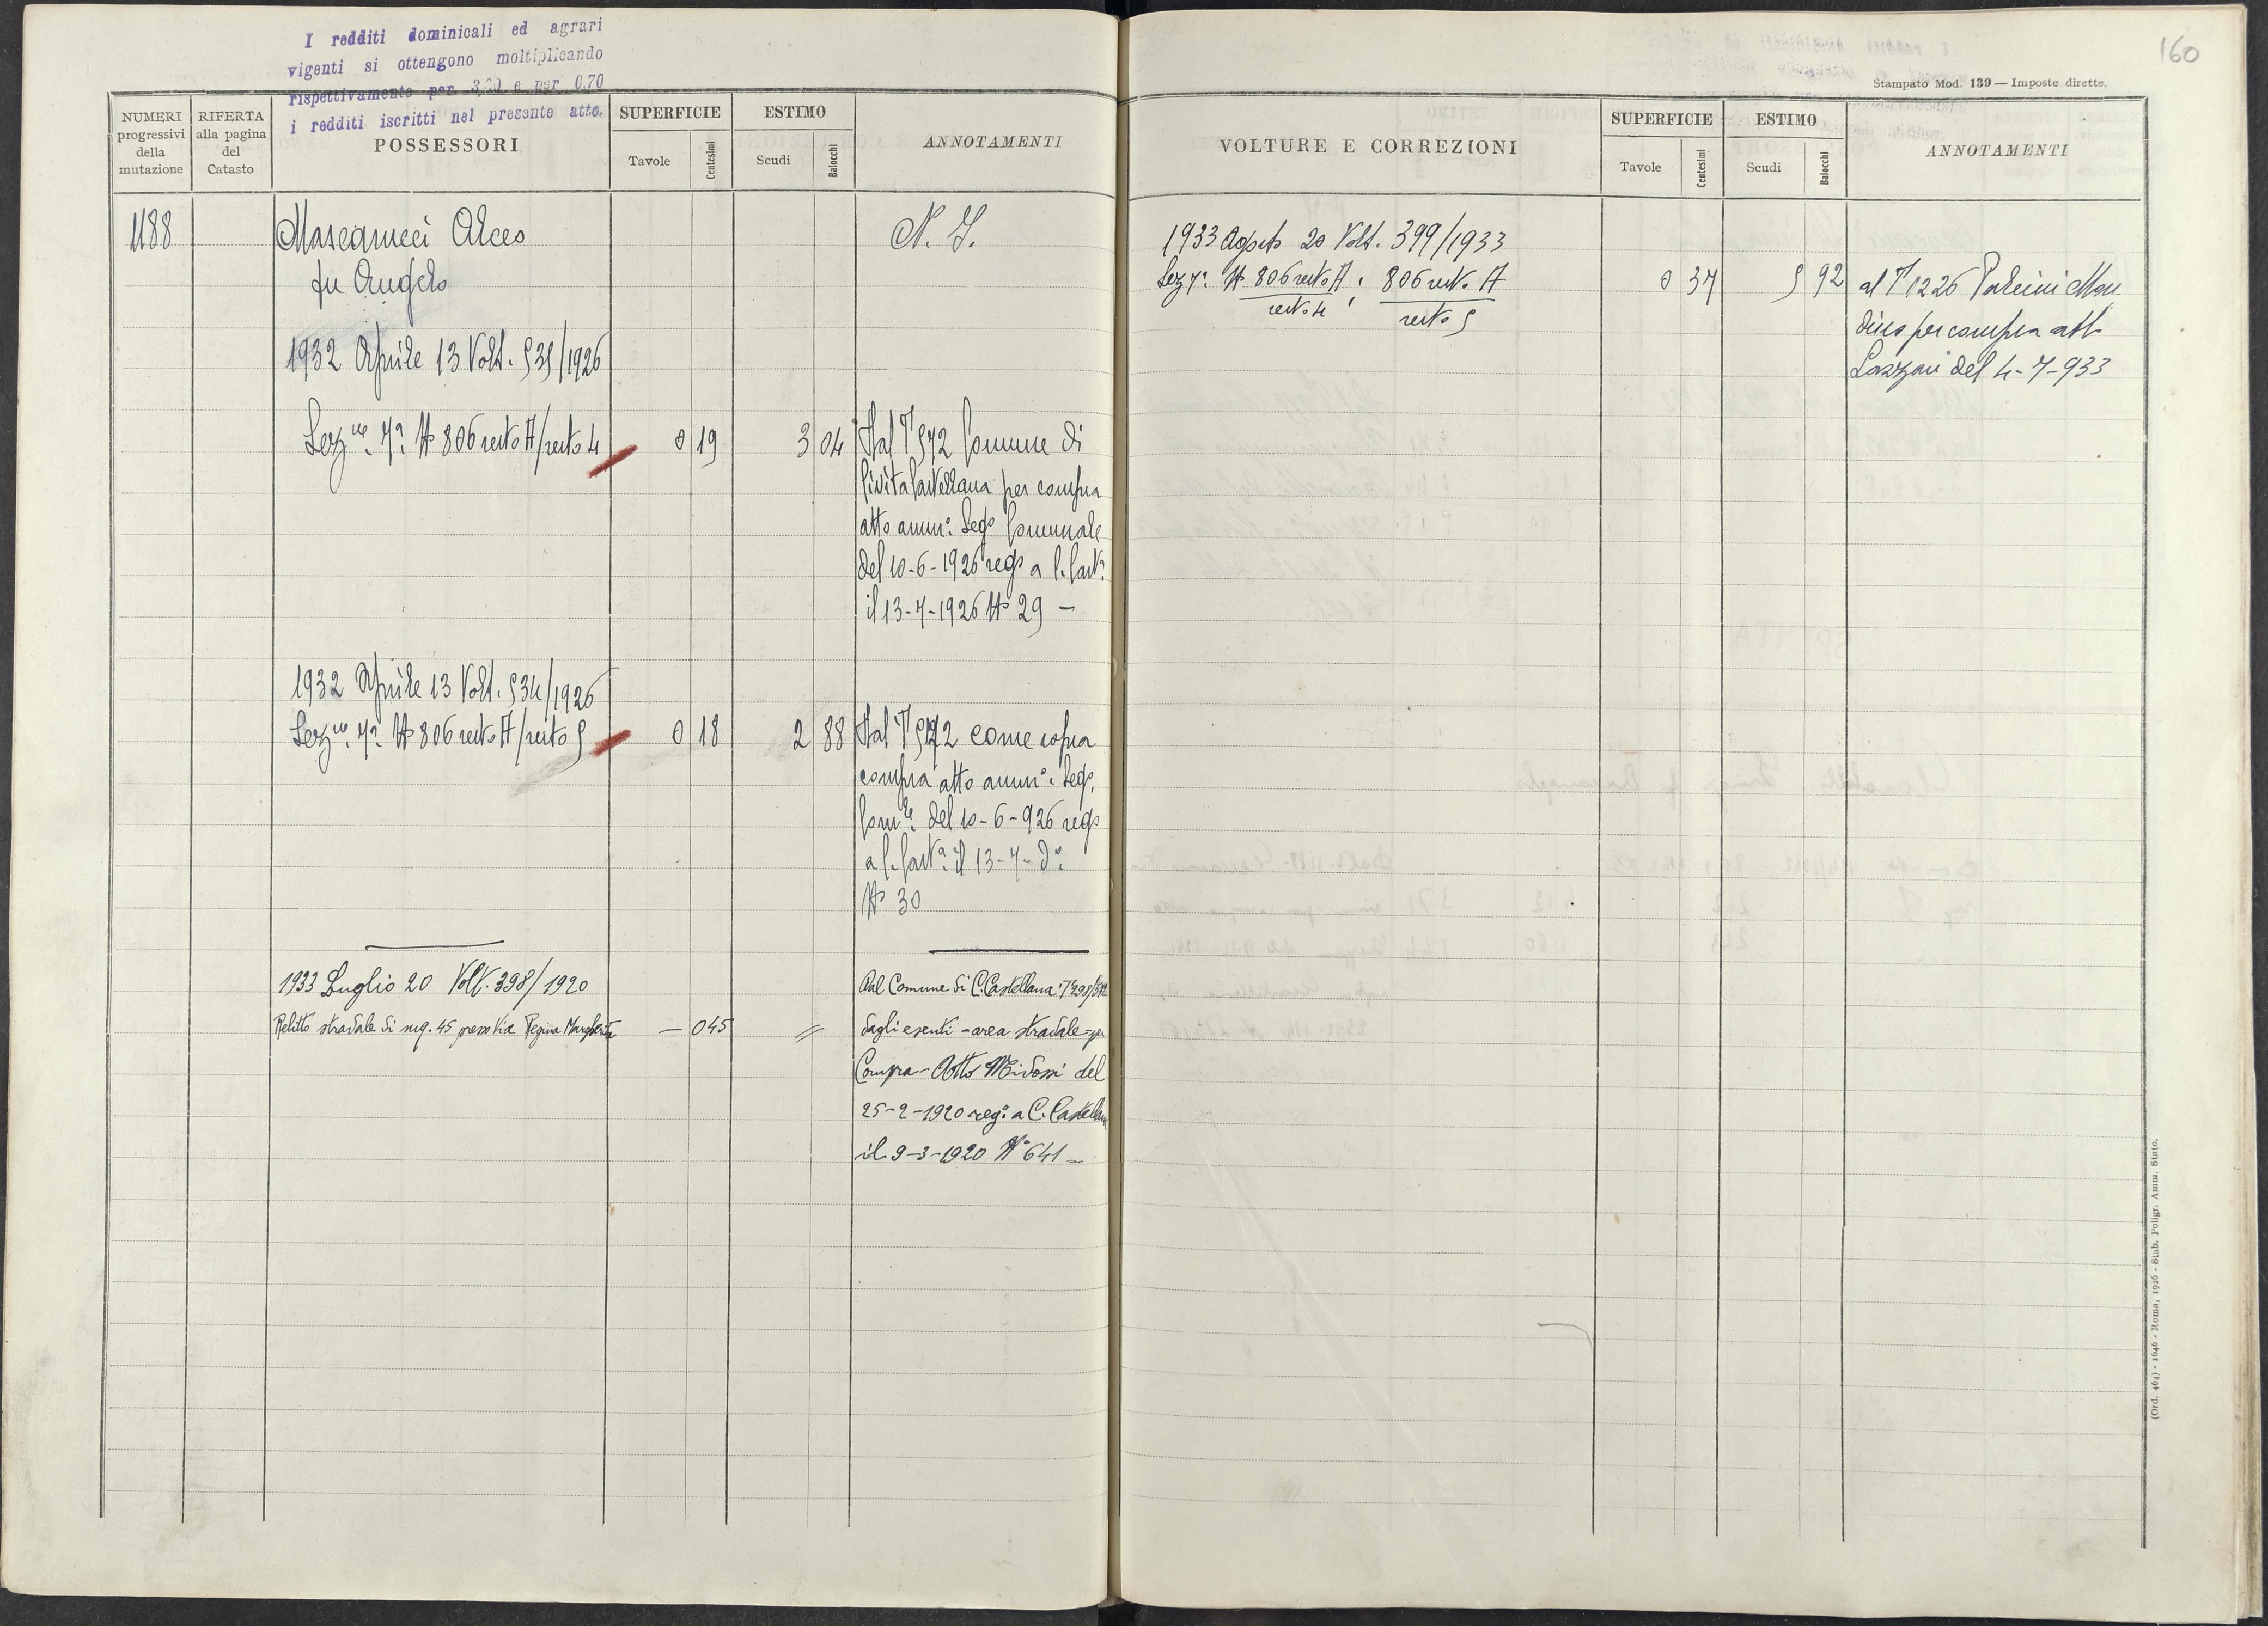 I redditi dominicali ed agrari
vigenti si ottengono moltiplicando
rispettivamente per 3,20 e per 0,70
i redditi iscritti nel presente atto.
NUMERI
progressivi
della
mutazione
RIFERTA
alla pagina
del
Catasto
POSSESSORI
SUPERFICIE
Tavole
Centesimi
ESTIMO
Scudi
Baiocchi
ANNOTAMENTI
1188
Mascarucci Alceo
fu Angelo
1932 Aprile 13 Volt. 535/1926
Sezne. 7a. No 806 resto A/resto 4 0 19 3 04
1932 Aprile 13 Volt. 534/1926
Sezne. 7a. No 806 resto A/resto 5 0 18 2 88
1933 Luglio 20 Volt. 398/1920
Relitto stradale di mq. 45 presso Via Regina Margherita — 045 =
N.
Dal T 572 Comune di
Civita Castellana per compra
atto amm.o Sego Comunale
del 10-6-1926 rego a C. Cast.a
il 13-7-1926 No 29 —
Dal T 572 come sopra
compra atto amm.o Sego.
Com.le del 10-6-926 rego
a C. Cast.a il 13-7-do.
No 30
Dal Comune di C. Castellana T
dagli esenti - area stradale - per
Compra - Atto Midossi del
25-2-1920 reg.o a C. Castellana
il 9-3-1920 No 641 —
160
Stampato Mod. 139 — Imposte dirette.
VOLTURE E CORREZIONI
SUPERFICIE
Tavole
Centesimi
ESTIMO
Scudi
Baiocchi
ANNOTAMENTI
1933 Agosto 20 Volt. 399/1933
Sez 7a. No 806 resto A/resto 4; 806 resto A/resto 5 0 37 5 92
al T 1226
per compra atto
del 4-7-933
(Ord. 464) - 1646 - Roma, 1926 - Stab. Poligr. Amm. Stato.